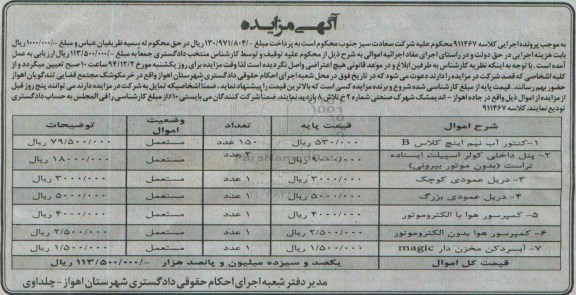 آگهی مزایده
به موجب پرونده اجرایی کلاسه ۹۱۱۴۶۷ محکوم علیه شرکت سعادت سیز جنوب محکوم است به پرداخت مبلغ -/۱۳۰/۹۷۱/۸۰۴ ریال در حق محکوم له رسمیه ظریفیان عباس و مبلغ -/۱۰۰۰/۰۰۰ ریال
بابت هزینه اجرایی در حق دولت و در راستای اجرای مفاد اجرائیه اموالی به شرح ذیل از محکوم علیه توقیف و توسط کارشناس منتخب دادگستری جمعا به مبلغ -/۱۱۳/۵۰۰/۰۰۰ ریال ارزیابی به عمل
آمده است. با توجه به اینکه نظریه کارشناس به طرفین ابلاغ و در موعد قانونی هیچ اعتراضی واصل نگردیده است لذا وقت مزایده برای روز یکشنبه مورخ ۹۴/۱۲/۲ ساعت ۱۰ صبح تعیین میگردد و از
کلیه اشخاصی که قصد شرکت در مزایده را دارند دعوت می شود که در تاریخ فوق در محل شعبه اجرای احکام حقوقی دادگستری شهرستان اهواز واقع در خرمکوشک مجتمع قضایی تندگویان اهواز
حضور بهم رسانند. قیمت پایه از مبلغ کارشناسی شده شروع و برنده مزایده کسی است که بالاترین قیمت را پیشنهاد نماید. ضمنا اشخاصیکه تمایل به شرکت در مزایده دارند می توانند پنج روز قبل
از مزایده از اموال ذیل واقع در جاده اهواز - اندیمشک شهرک صنعتی شماره ۲ خ تلاش ۸ بازدید نمایند. ضمنا شرکت کنندگان می بایستی ۱۰٪ از مبلغ کارشناسی را فی المجلس به حساب دادگستری
تودیع نمایند. کلاسه ۹۱۱۴۶۷
شرح اموال قیمت پایه تعداد وضعیت اموال توضیحات
۱- کنتور آب نیم اینچ کلاس B ۵۳۰/۰۰۰ ریال ۱۵۰ عدد مستعمل ۷۹/۵۰۰/۰۰۰ ریال
۲- پنل داخلی کولر اسپیلت ایستاده تراست (بدون موتور بیرونی) ریال عدد مستعمل ۱۸۰۰۰/۰۰۰ ریال
۳- دریل عمودی کوچک ۳۰۰۰/۰۰۰ ریال ۱ عدد مستعمل ۳۰۰۰/۰۰۰ ریال
۴- دریل عمودی بزرگ ۵۰۰۰/۰۰۰ ریال ۱ عدد مستعمل ۵۰۰۰/۰۰۰ ریال
۵- کمپرسور هوا با الکتروموتور ۴۰۰۰/۰۰۰ ریال ۱ عدد مستعمل ۴۰۰۰/۰۰۰ ریال
۶- کمپرسور هوا بدون الکتروموتور ۲/۵۰۰/۰۰۰ ریال ۱ عدد مستعمل ۲/۵۰۰/۰۰۰ ریال
۷- آبسردکن مخزن دار magic ۱/۵۰۰/۰۰۰ ریال ۱ عدد مستعمل ۱/۵۰۰/۰۰۰ ریال
قیمت کل اموال یکصد و سیزده میلیون و پانصد هزار -/۱۱۳/۵۰۰/۰۰۰ ریال
مدیر دفتر شعبه اجرای احکام حقوقی دادگستری شهرستان اهواز - چلداوی